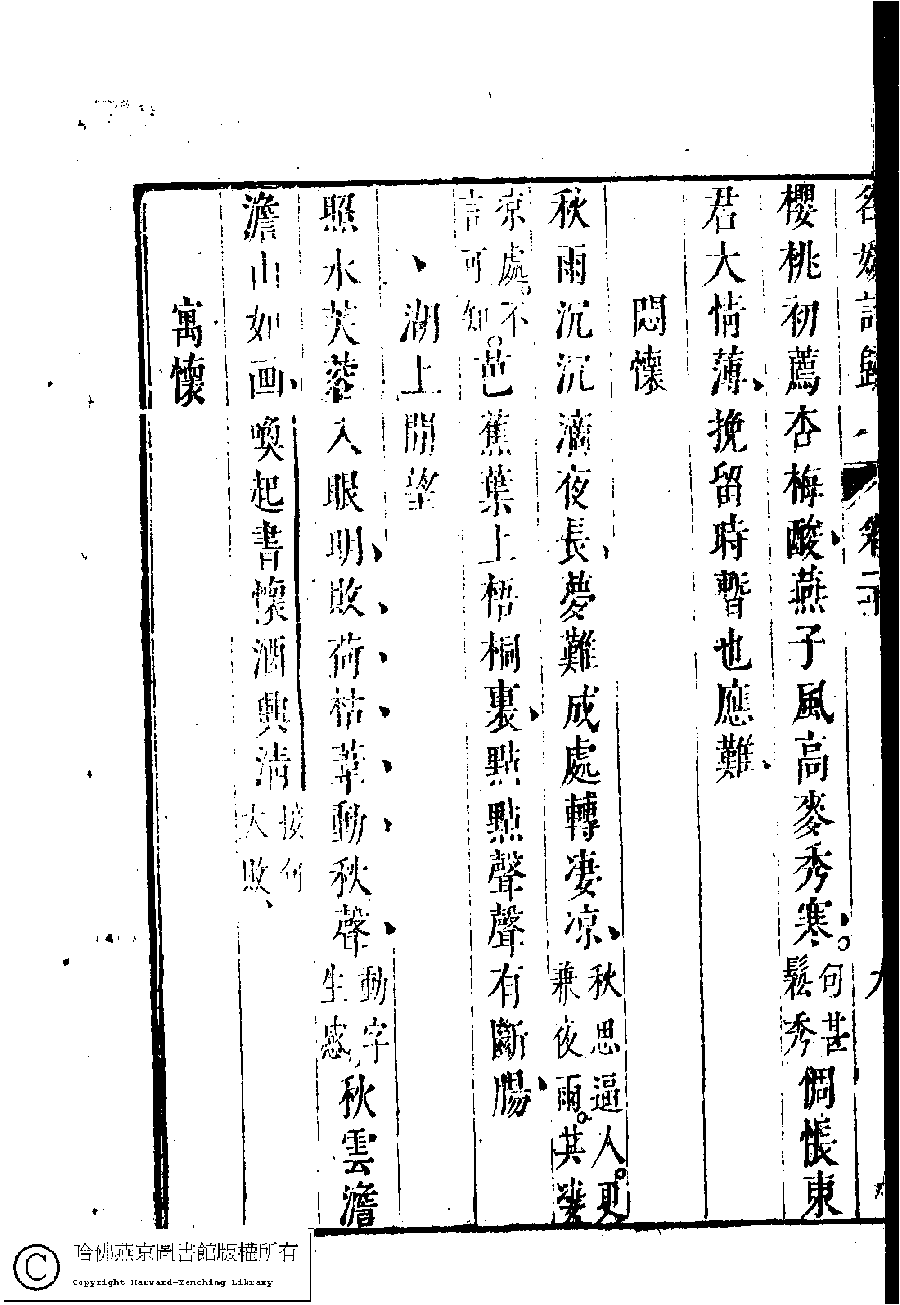 名媛詩歸 卷二十
櫻桃初薦杏梅酸燕子風高麥秀寒。何甚鬆秀惆悵東
君大情薄、挽留時暫也應難、
悶懷
秋雨沉沉滴夜長、夢難成處轉凄凉、秋思逼人。更兼夜雨。其凄
凉處。不言可知。芭蕉葉上梧桐裏、點點聲聲有斷腸、
湖上閒望
照水芙蓉入眼明、敗荷枯葦動秋聲、動字生感秋雲澹
澹山如画、喚起書懷酒興清接句大敗、
寓懷
哈佛燕京圖書館版權所有
Copyright Harvard-Yenching Library